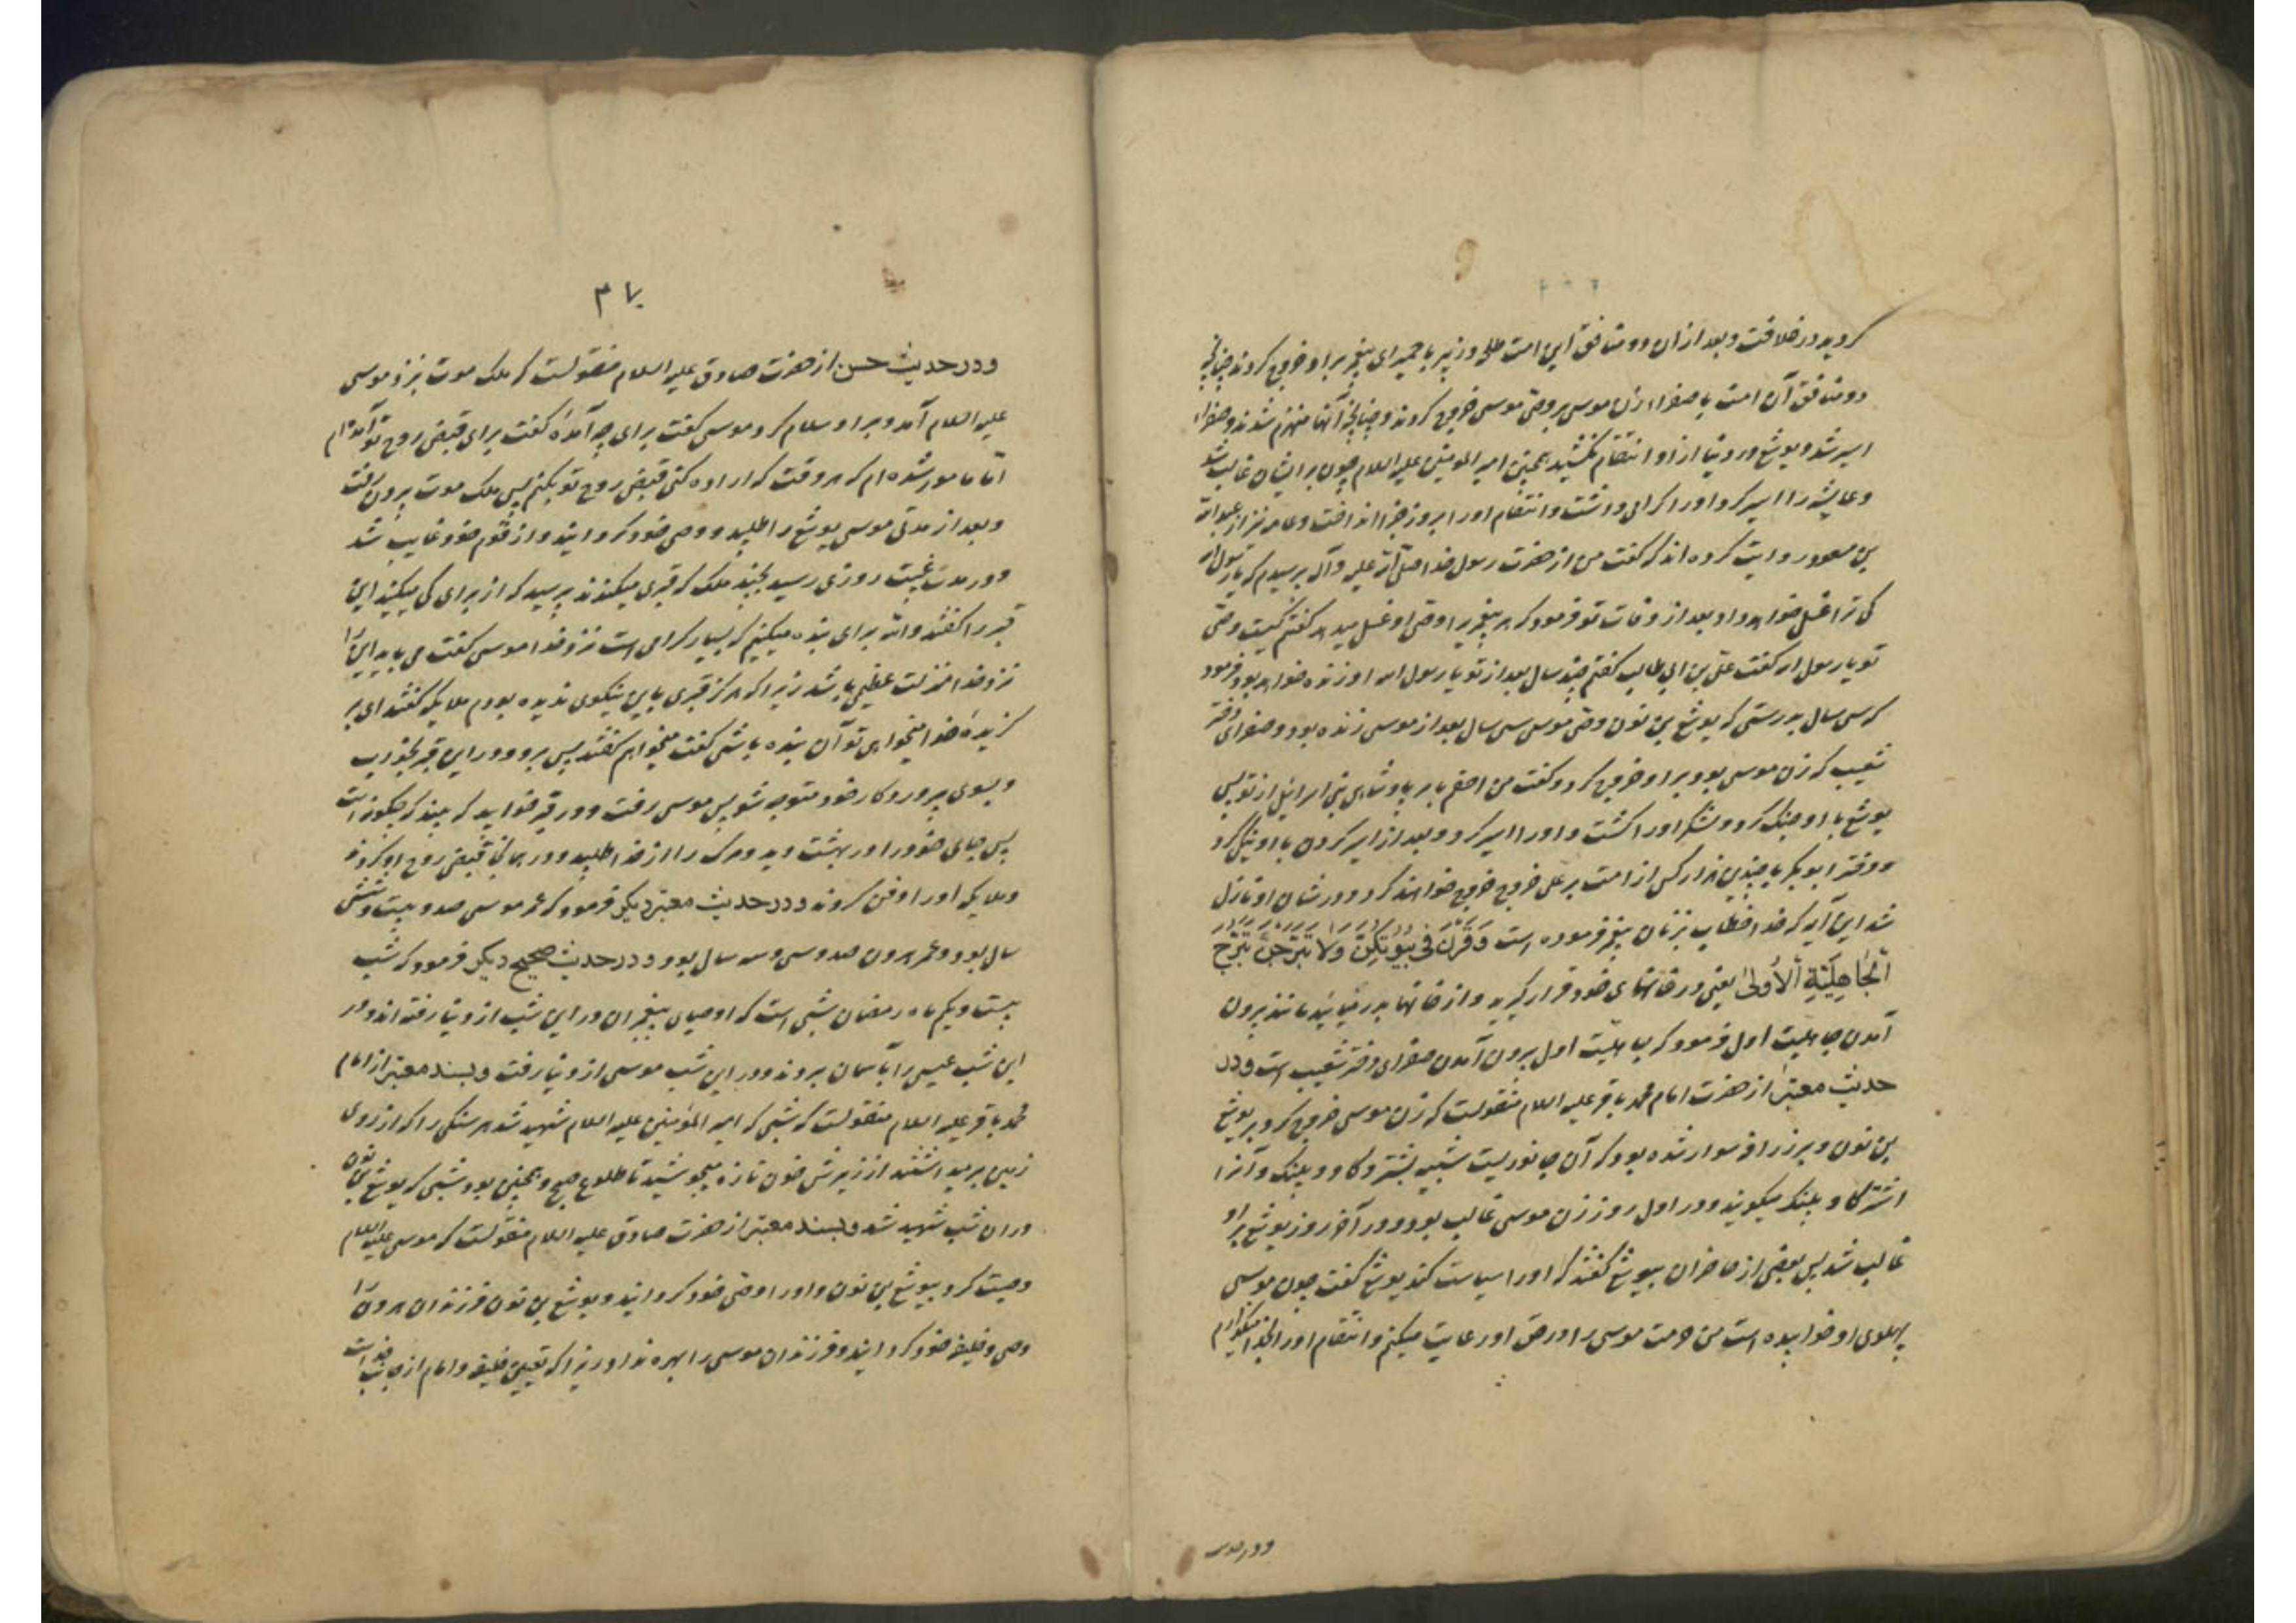 کردید در خلافت و بعد از ان دو منافق این امت طلحه و زبیر با حمیرای پیغمبر بر او خروج کردند چنانچه
دو منافق آن امت با صفراء زن موسی بر وصی موسی خروج کردند و چنانچه آنها منهزم شدند و صفراء
اسیر شد و یوشع در دنیا از او انتقام نکشید همچنین امیر المومنین علیه السلام چون بر ایشان غالب شد
و عایشه را اسیر کرد او را گرامی داشت و انتقام او را بروز جزا انداخت و عامه نیز از عبد الله
بن مسعود روایت کرده اند که گفت من از حضرت رسول خدا صلی الله علیه و آله پرسیدم که یا رسول الله
کی ترا غسل خواهد داد بعد از وفات تو فرمود که هر پیغمبر را وصی او غسل میدهد گفتم کیست وصی
تو یا رسول الله گفت علی بن ابی طالب گفتم چند سال بعد از تو یا رسول الله او زنده خواهد بود فرمود
که سی سال بدرستی که یوشع بن نون وصی موسی سی سال بعد از موسی زنده بود و صفرای دختر
شعیب که زن موسی بود بر او خروج کرد و گفت من احقم بامر پادشاهی بنی اسرائیل از تو پس
یوشع با او جنگ کرد و لشکر او را کشت و او را اسیر کرد و بعد از اسیر کردن با او نیکی کرد
و دختر ابو بکر با چندین هزار کس از امت بر علی خروج خروج خواهند کرد و در شان او نازل
شد این آیه که خدا خطاب بزنان پیغمبر فرموده است وَقَرْنَ فِی بُیُوتِکُنَّ وَلَا تَبَرَّجْنَ تَبَرُّجَ
اَلْجَاهِلِیَّةِ اَلْأُولیٰ یعنی در خانهای خود قرار گیرید و از خانها بدر میائید مانند بیرون
آمدن جاهلیت اول فرمود که جاهلیت اول بیرون آمدن صفرای دختر شعیب است و در
حدیث معتبر از حضرت امام محمد باقر علیه السلام منقولست که زن موسی خروج کرد بر یوشع
بن نون و بر زرافه سوار شده بود که آن جانوریست شبیه بشتر و گاو و پلنگ و آنرا
اشتر گاو پلنگ میگویند و در اول روز زن موسی غالب بود و در آخر روز یوشع بر او
غالب شد پس بعضی از حاضران بیوشع گفتند که او را سیاست کند یوشع گفت چون موسی
پهلوی او خوابیده است من حرمت موسی را در حق او رعایت میکنم و انتقام او را بخدا میگذارم
و در حدیث
۳۷
و در حدیث حسن از حضرت صادق علیه السلام منقولست که ملک موت بنزد موسی
علیه السلام آمد و بر او سلام کرد موسی گفت برای چه آمدۀ گفت برای قبض روح تو آمده ام
اما مامور شده ام که هر وقت که اراده کنی قبض روح تو بکنم پس ملک موت بیرون رفت
و بعد از مدتی موسی یوشع را طلبید و وصی خود گردانید و از قوم خود غایب شد
و در مدت غیبت روزی رسید بچند ملک که قبری میکندند پرسید که از برای کی میکنید این
قبر را گفتند والله برای بنده میکنیم که بسیار گرامی است نزد خدا موسی گفت می باید این را
نزد خدا منزلت عظیمی باشد زیرا که هرگز قبری باین نیکوی ندیده بودم ملایکه گفتند ای بر
گزیدۀ خدا میخواهی تو آن بنده باشی گفت میخواهم گفتند پس برو و در این قبر بخواب
و بسوی پروردگار خود متوجه شو پس موسی رفت و در قبر خوابید که ببیند که چگونه است
پس جای خود را در بهشت دید و مرگ را از خدا طلبید و در همانجا قبض روح او کردند
و ملایکه او را دفن کردند و در حدیث معتبر دیگر فرمود که عمر موسی صد و بیست و شش
سال بود و عمر هرون صد و سی و سه سال بود و در حدیث صحیح دیگر فرمود که شب
بیست و یکم ماه رمضان شبی است که اوصیای پیغمبران در این شب از دنیا رفته اند و در
این شب عیسی را بآسمان بردند و در این شب موسی از دنیا رفت و بسند معتبر از امام
محمد باقر علیه السلام منقولست که شبی که امیر المؤمنین علیه السلام شهید شد هر سنگی را که از روی
زمین برمیداشتند از زیرش خون تازه میجوشید تا طلوع صبح و همچنین بود شبی که یوشع بن نون
در ان شب شهید شد و بسند معتبر از حضرت صادق علیه السلام منقولست که موسی علیه السلام
وصیت کرد بیوشع بن نون و او را وصی خود گردانید و یوشع بن نون فرزندان هرون را
وصی و خلیفه خود گردانید و فرزندان موسی را بهره نداد زیرا که تعیین خلیفه و امام از جانب خداست